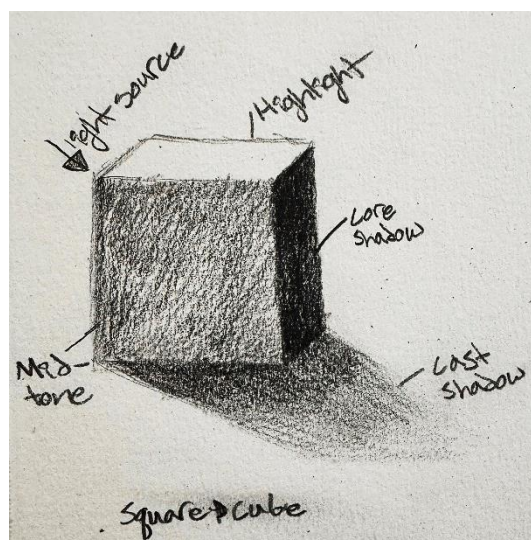 light source
Highlight
Core
shadow
Mid
tone
Cast
shadow
Square → Cube